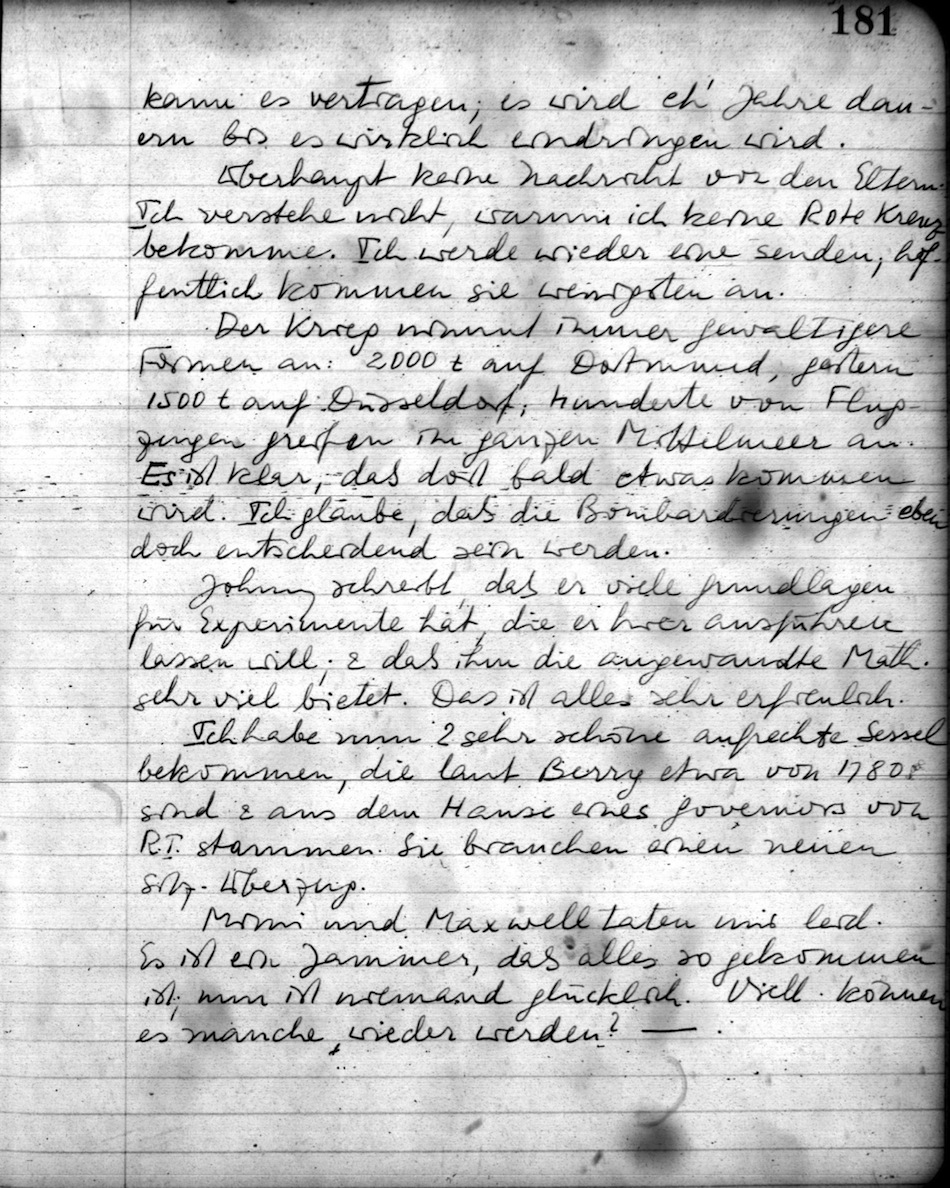 181
kann es vertragen; es wird eh' Jahre dau-
ern bis es wirklich eindringen wird.
Überhaupt keine Nachricht von den Eltern.
Ich verstehe nicht, warum ich keine Rote Kreuz
bekomme. Ich werde wieder eine senden; hof-
fentlich kommen sie wenigsten an.
Der Krieg nimmt immer gewaltigere
Formen an: 2000 t auf Dortmund, gestern
1500 t auf Düsseldorf; Hunderte von Flug-
zeugen greifen im ganzen Mittelmeer an.
Es ist klar, daß dort bald etwas kommen
wird. Ich glaube, daß die Bombardierungen eben
doch entscheidend sein werden.
Johnny schreibt, daß er viele Grundlagen
für Experimente hat, die er hier ausführen
lassen will; & daß ihm die angewandte Math.
sehr viel bietet. Das ist alles sehr erfreulich.
Ich habe nun 2 sehr schöne aufrechte Sessel
bekommen, die laut Berry etwa von 1780
sind & aus dem Hause eines Governors von
R.I. stammen. Sie brauchen einen neuen
Sitz-Überzug.
Mimi und Maxwell taten mir leid.
Es ist ein Jammer, daß alles so gekommen
ist; nun ist niemand glücklich. Viell. können
es manche wieder werden? — .